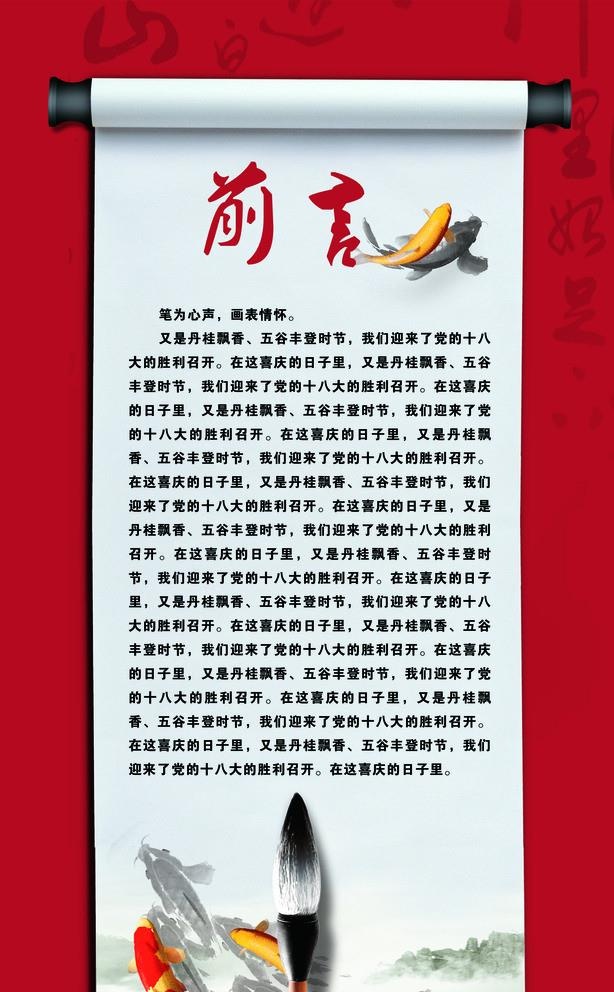 前言
笔为心声，画表情怀。
又是丹桂飘香、五谷丰登时节，我们迎来了党的十八
大的胜利召开。在这喜庆的日子里，又是丹桂飘香、五谷
丰登时节，我们迎来了党的十八大的胜利召开。在这喜庆
的日子里，又是丹桂飘香、五谷丰登时节，我们迎来了党
的十八大的胜利召开。在这喜庆的日子里，又是丹桂飘
香、五谷丰登时节，我们迎来了党的十八大的胜利召开。
在这喜庆的日子里，又是丹桂飘香、五谷丰登时节，我们
迎来了党的十八大的胜利召开。在这喜庆的日子里，又是
丹桂飘香、五谷丰登时节，我们迎来了党的十八大的胜利
召开。在这喜庆的日子里，又是丹桂飘香、五谷丰登时
节，我们迎来了党的十八大的胜利召开。在这喜庆的日子
里，又是丹桂飘香、五谷丰登时节，我们迎来了党的十八
大的胜利召开。在这喜庆的日子里，又是丹桂飘香、五谷
丰登时节，我们迎来了党的十八大的胜利召开。在这喜庆
的日子里，又是丹桂飘香、五谷丰登时节，我们迎来了党
的十八大的胜利召开。在这喜庆的日子里，又是丹桂飘
香、五谷丰登时节，我们迎来了党的十八大的胜利召开。
在这喜庆的日子里，又是丹桂飘香、五谷丰登时节，我们
迎来了党的十八大的胜利召开。在这喜庆的日子里。